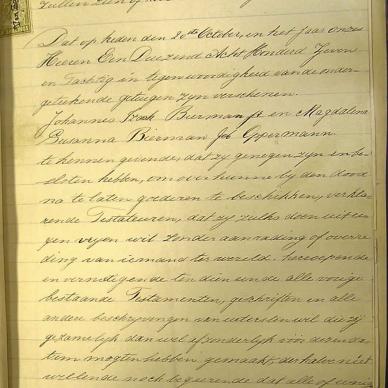 zullen zien of
Dat op heden den 20th October, in het jaar onzes
Heeren Een Duizend Acht Honderd Zeven
en Tachtig in tegenwoordigheid van de onder-
geteekende getuigen zyn verschenen.
Johannes Bierman en Magdalena
Susanna Bierman geb Opperman
te kennen gevende, dat zy genegen zyn en be-
sloten hebben, om over hunne by den dood
na te laten goederen te beschikken, verkla-
rende Testateuren, dat zij zulks doen uit ei-
gen vryen wil zonder aanrading of overre-
ding van iemand ter wereld. herroepende
en vernietigende ten dien einde alle vorige
bestaande Testamenten, geschriften en alle
andere beschryvingen van uitersten wil die zij
gezamelijk dan wel afzonderlijk vóór dezen da-
tum mogten hebben gemaakt, derhalve niet
willende noch begeerende dat alle of eenig